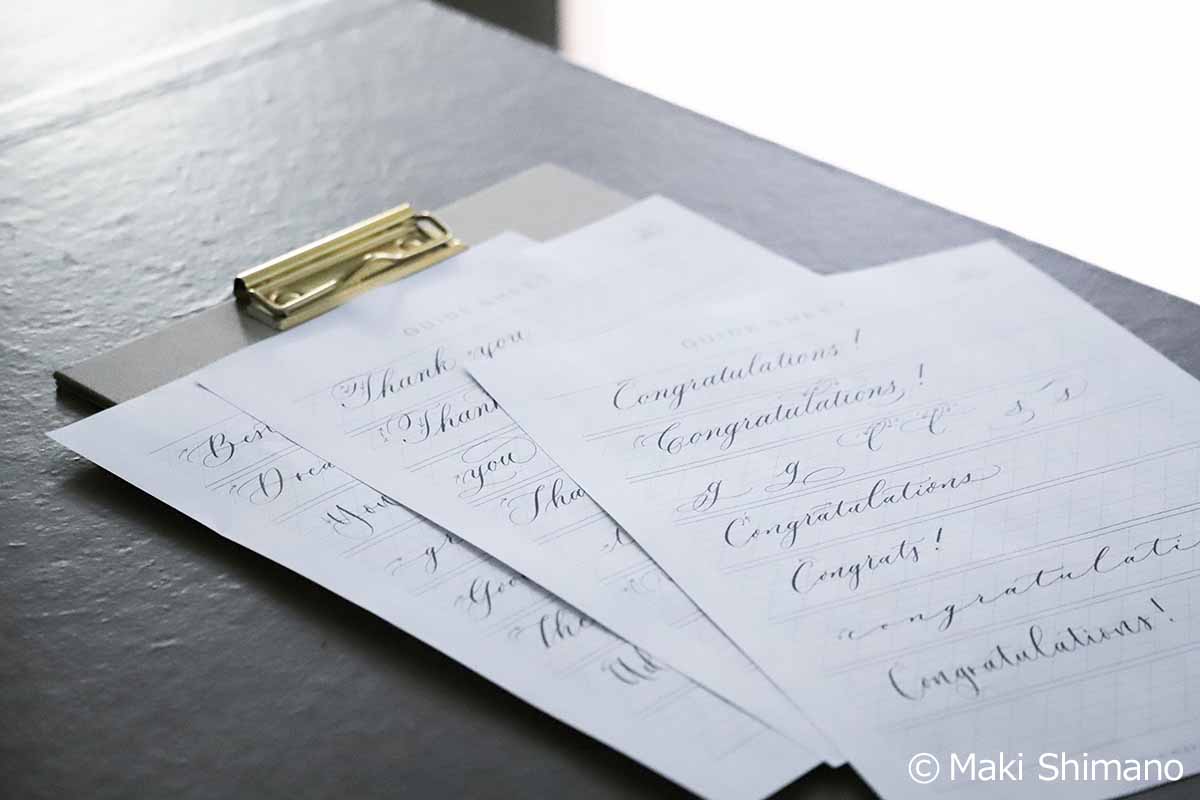 Best
Drea
You
gr
Goo
Tha
Ad
GUIDE SHEET
Thank you
Thank
you
Tha
GUIDE SHEET
Congratulations!
Congratulations!
s, s
g g
Congratulations
Congrats!
congratulati
Congratulations!
© Maki Shimano